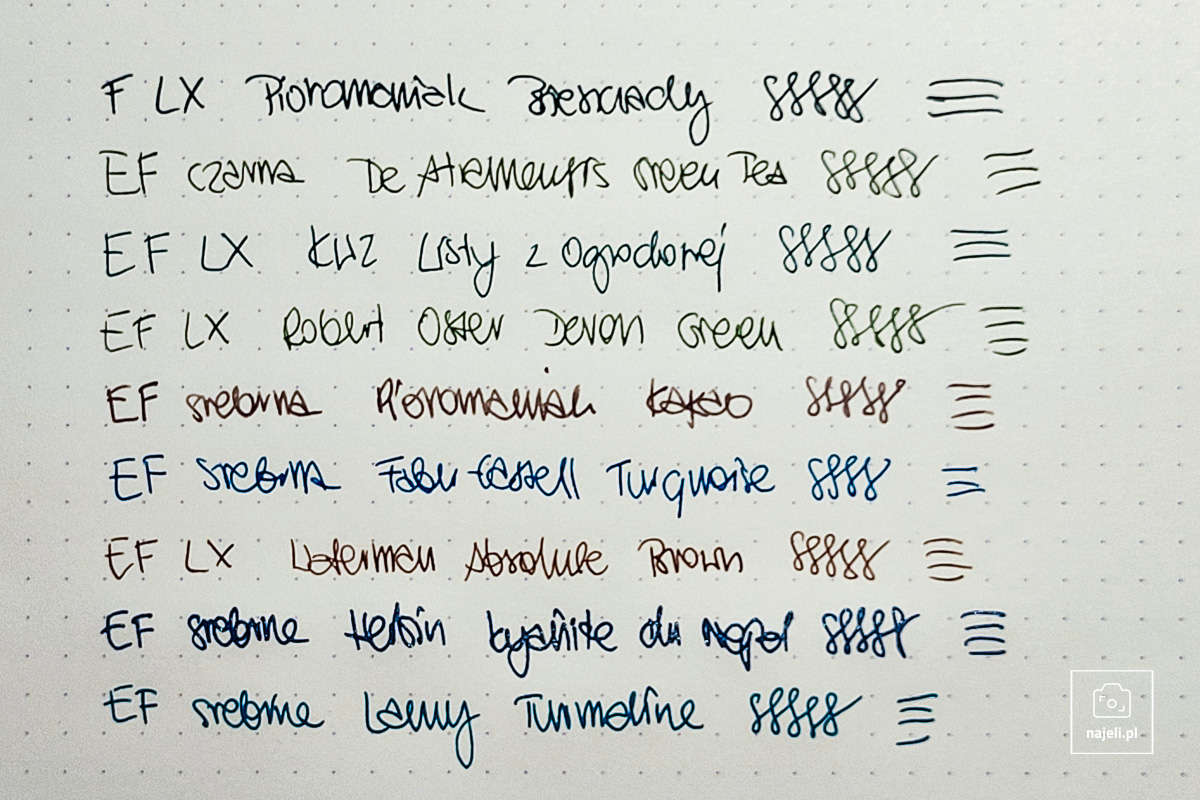 F LX Pióromaniak Bieszczady
EF czarna De Atramentis Green Tea
EF LX KWZ Listy z Ogrodowej
EF LX Robert Oster Devon Green
EF srebrna Pióromaniak Kakao
EF srebrna Faber-Castell Turquoise
EF LX Waterman Absolute Brown
EF srebrne Herbin Kyanite du Népal
EF srebrne Lamy Turmaline
najeli.pl